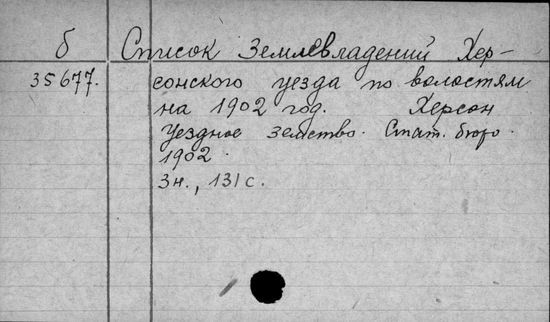 б Список Землевладений Хер-
35677. сонского уезда по волостям
на 1902 год. Херсон
Уездное Земство. Стат. бюро.
1902.
3н., 131 с.